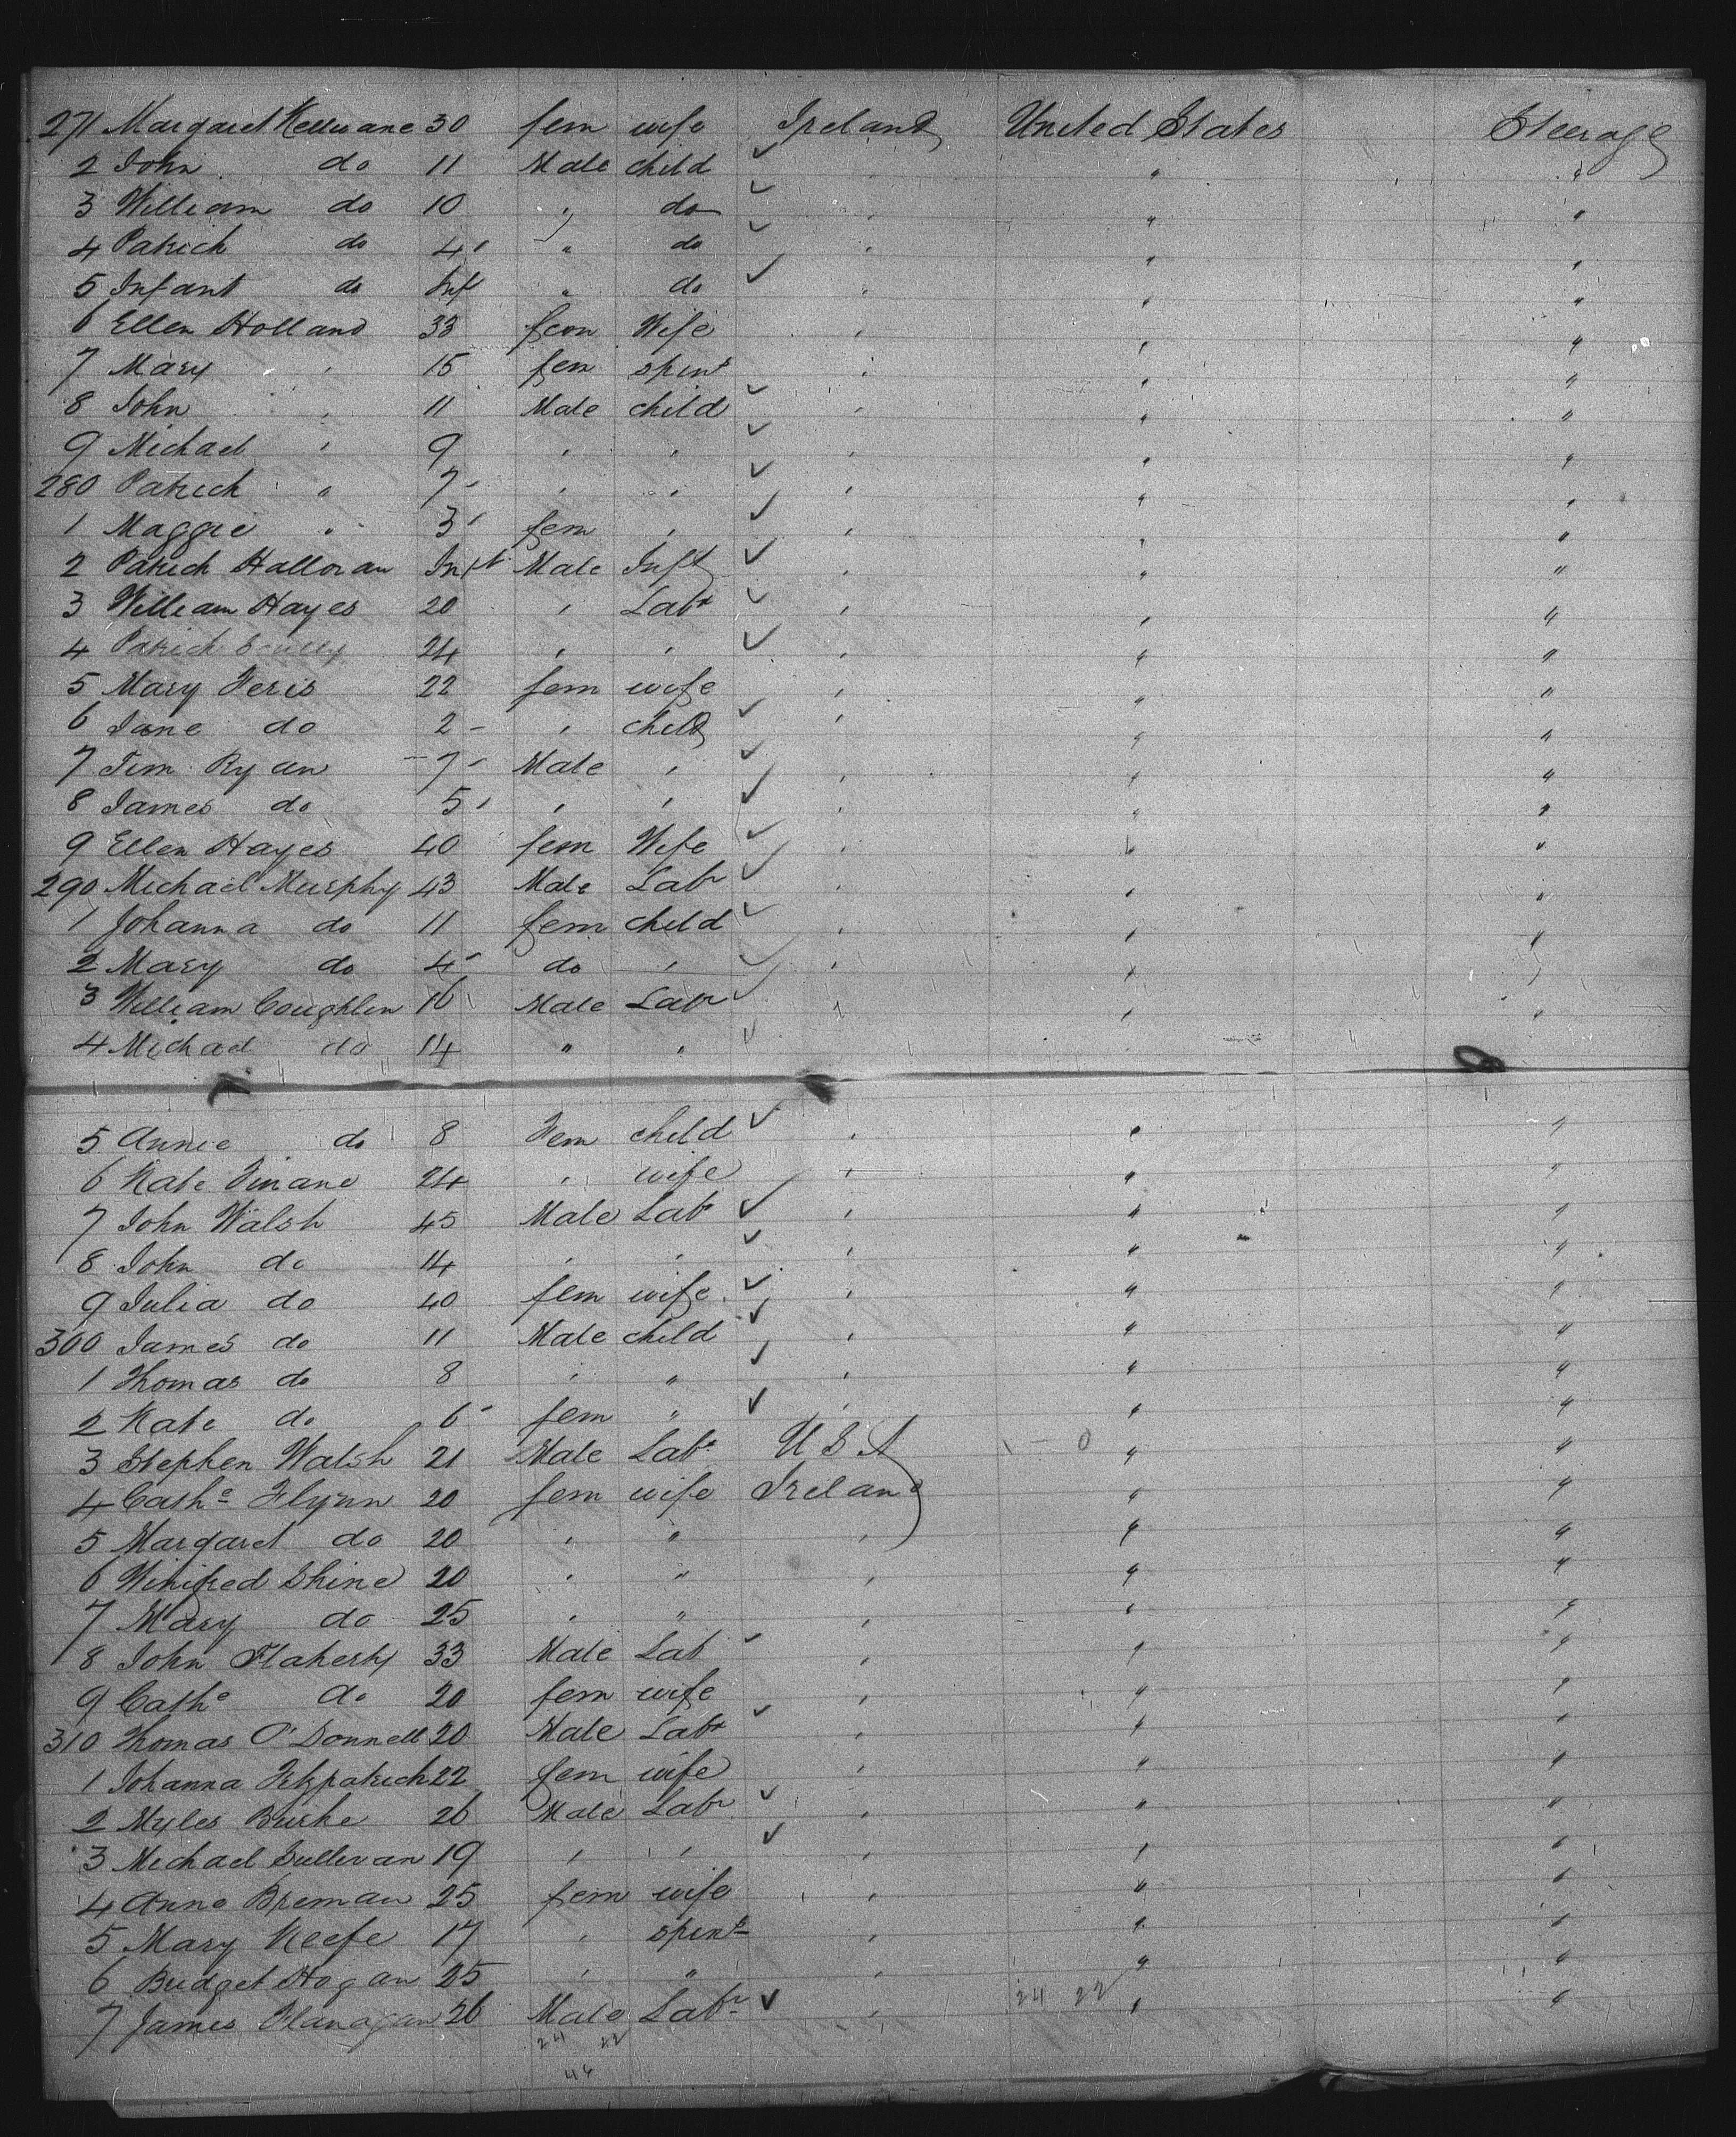 271 Margaret Kelleane 30 fem wife Ireland United States Steerage
2 John do 11 Male child ✓ " "
3 William do 10 " do ✓ " " "
4 Patrick do 4 " do ✓ " " "
5 Infant do Inf " do ✓ " " "
6 Ellen Holland 33 fem Wife " " "
7 Mary " 15 fem spinr " " "
8 John " 11 Male child ✓ " " "
9 Michael " 9 " " ✓ " " "
280 Patrick " 7 " " ✓ " " "
1 Maggie " 3 fem " ✓ " " "
2 Patrick Halloran Inft Male Inft ✓ " " "
3 William Hayes 20 " Labr ✓ " " "
4 Patrick Scully 24 " " ✓ " " "
5 Mary Feris 22 fem wife " " "
6 Jane do 2 " child ✓ " " "
7 Tim Ryan 7 Male " ✓ " " "
8 James do 5 " " ✓ " " "
9 Ellen Hayes 40 fem Wife ✓ " " "
290 Michael Murphy 43 Male Labr ✓ " " "
1 Johanna do 11 fem child ✓ " " "
2 Mary do 4 do " ✓ " " "
3 William Coughlin 16 Male Labr ✓ " " "
4 Michael do 14 " " ✓
5 Annie do 8 Fem child ✓ " " "
6 Kate Dinane 24 " wife " " "
7 John Walsh 45 Male Labr ✓ " " "
8 John do 14 " " ✓ " " "
9 Julia do 40 fem wife ✓ " " "
300 James do 11 Male child ✓ " " "
1 Thomas do 8 " " ✓ " " "
2 Kate do 6 fem " ✓ " " "
3 Stephen Walsh 21 Male Labr U S A " "
4 Cathe Flynn 20 fem wife Ireland " "
5 Margaret do 20 " " " " "
6 Winifred Shine 20 " " " " "
7 Mary do 25 " " " " "
8 John Flaherty 33 Male Lab ✓ " " "
9 Cathe do 20 fem wife " " "
310 Thomas O'Donnell 20 Male Labr ✓ " " "
1 Johanna Fitzpatrick 22 fem wife " " "
2 Myles Burke 26 Male Labr ✓ " " "
3 Michael Sullivan 19 " " ✓ " " "
4 Anne Brennan 25 fem wife " " "
5 Mary Keefe 17 " spinr " " "
6 Bridget Hogan 25 " " " " "
7 James Flanagan 26 Male Labr ✓ " " "
24 22
24 22
46